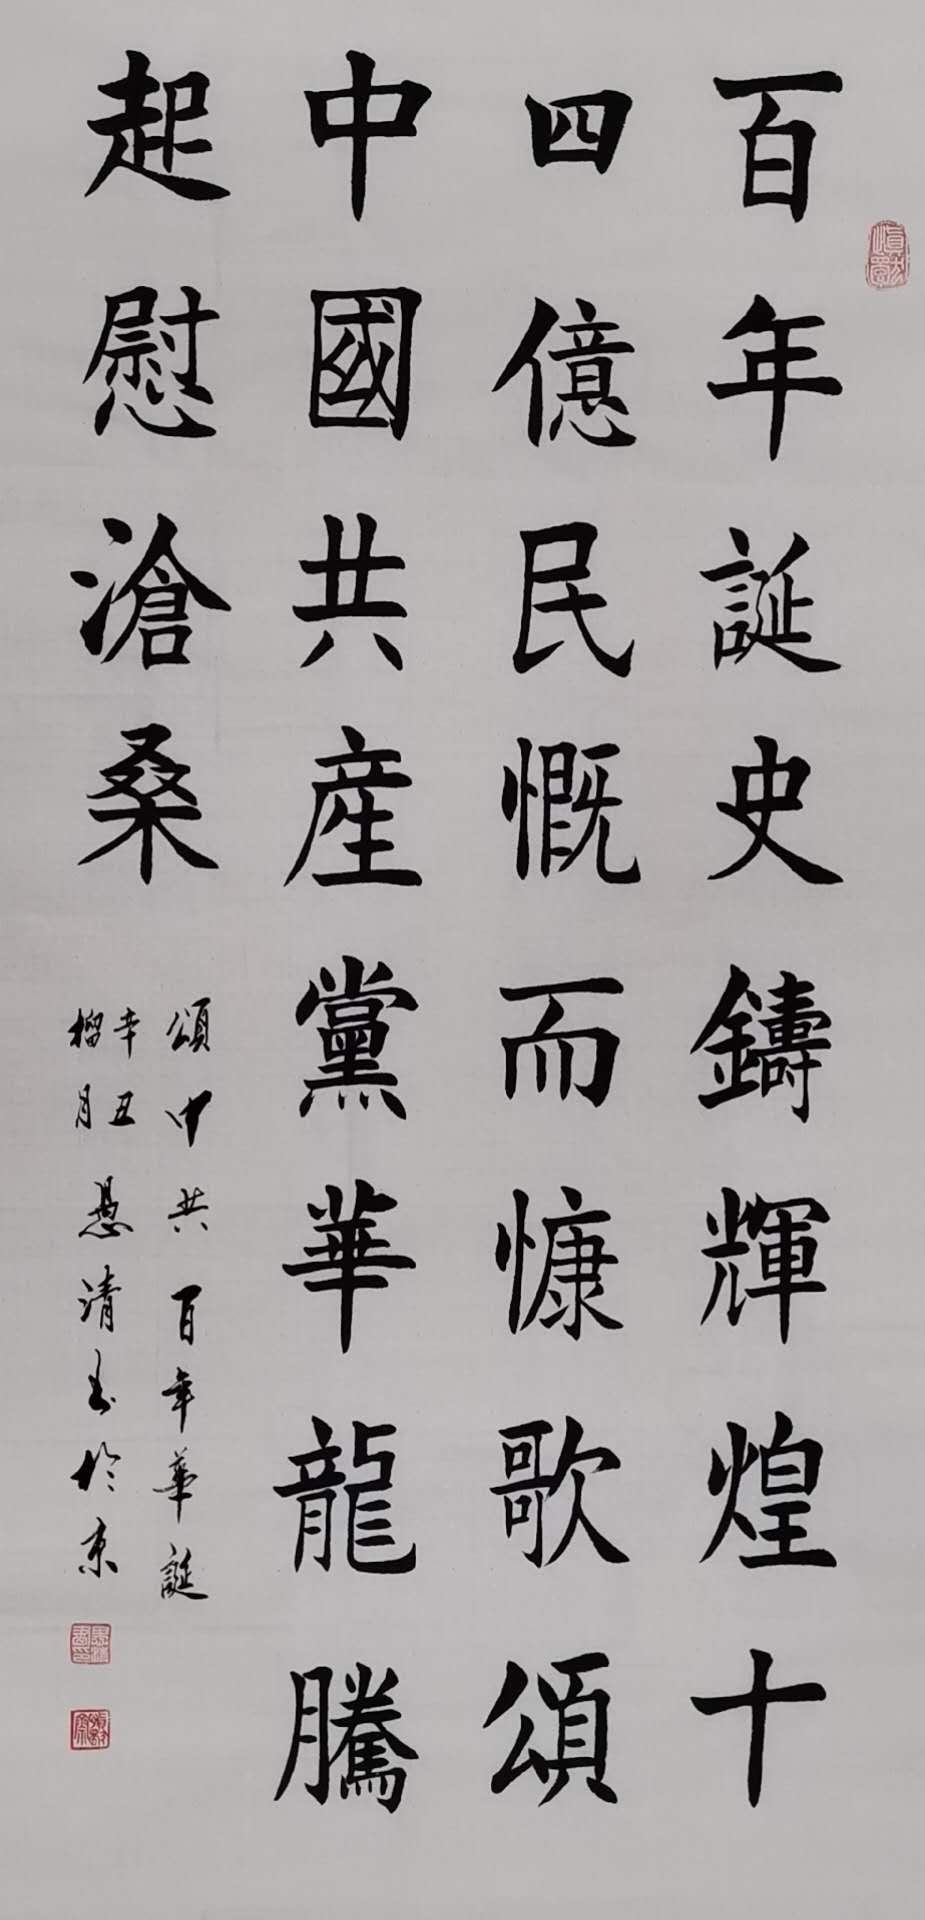 百年誕史鑄輝煌十
四億民慨而慷歌頌
中國共産黨華龍騰
起慰滄桑
頌中共百年華誕
辛丑
榴月
愚清书於京